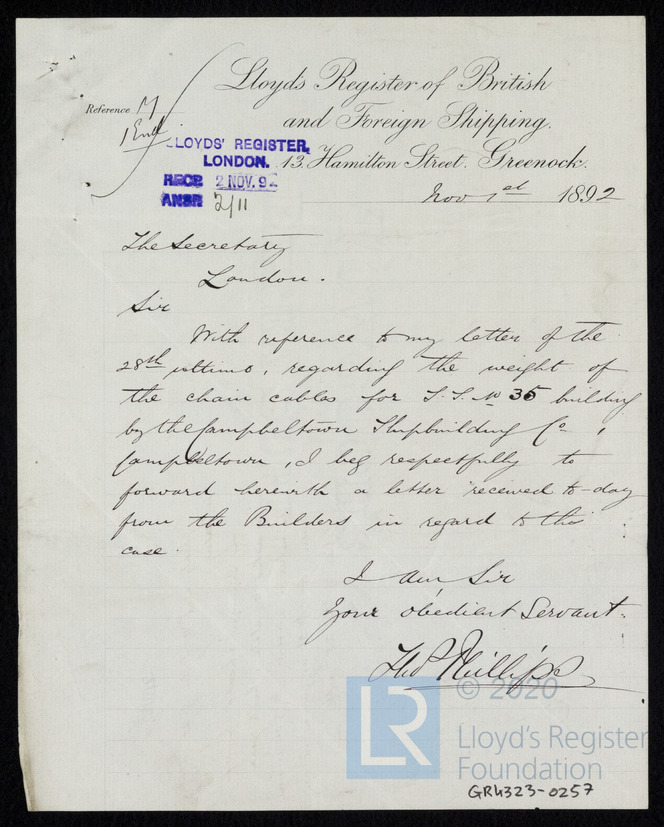 Lloyds Register of British
and Foreign Shipping.
Reference M
1 Encl
LLOYDS' REGISTER,
LONDON.
13. Hamilton Street. Greenock.
RECD 2 NOV. 92
ANSD 2/11
Nov 1st 1892
The Secretary
London.
Sir
With reference to my letter of the
28th ultimo, regarding the weight of
the chain cables for S.S. No 35 building
by the Campbeltown Shipbuilding Co,
Campbeltown, I beg respectfully to
forward herewith a letter received to-day
from the Builders in regard to this
case.
I am Sir
Your obedient Servant.
Thos Phillips
© 2020
LR
Lloyd's Register
Foundation
GR4323-0257